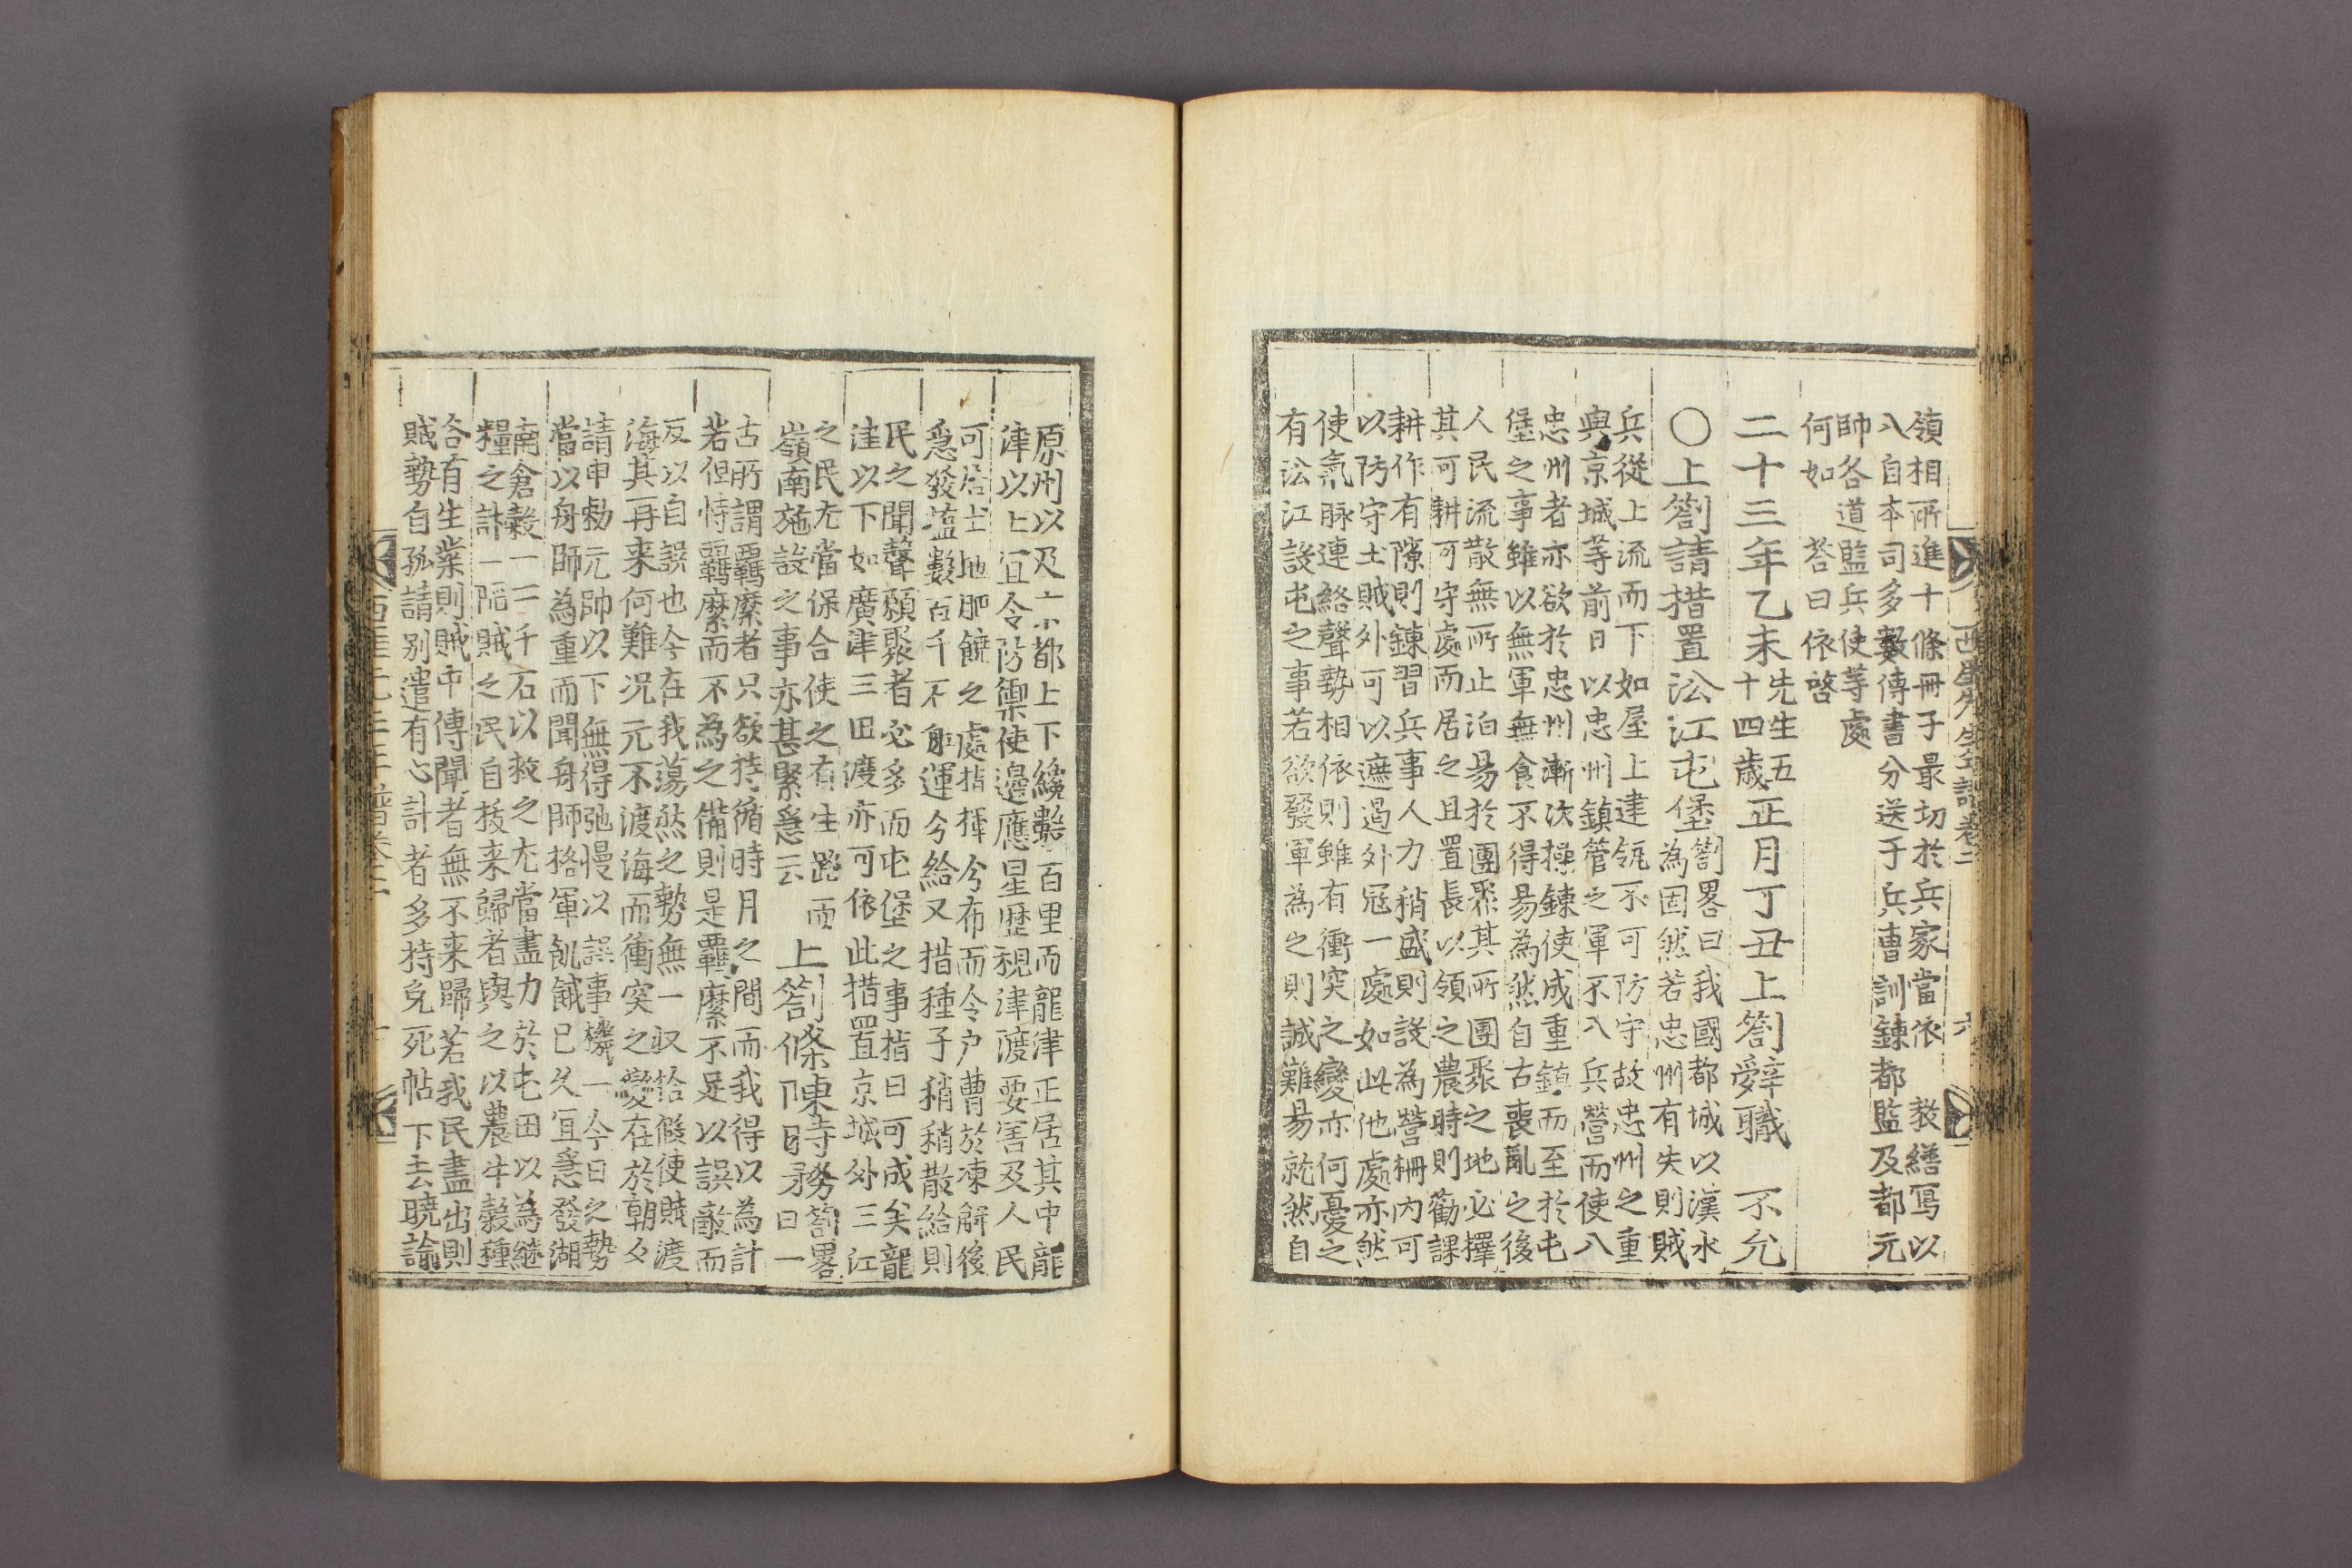 領相所進十條冊子最切於兵家當依 敎繕寫以
入自本司多數傳書分送于兵曹訓鍊都監及都元
帥各道監兵使等處
何如 答曰依啓
二十三年乙未先生五十四歲正月丁丑上箚辭職 不允
○上箚請措置沿江屯堡
箚畧曰我國都城以漢水
為固然若忠州有失則賊
兵從上流而下如屋上建瓴不可防守故忠州之重
與京城等前日以忠州鎮管之軍不入兵營而使入
忠州者亦欲於忠州漸次操鍊使成重鎮而至於屯
堡之事雖以無軍無食不得易為然自古喪亂之後
人民流散無所止泊易於團聚其所團聚之地必擇
其可耕可守處而居之且置長以領之農時則勸課
耕作有隙則鍊習兵事人力稍盛則設為營柵內可
以防守土賊外可以遮遏外冦一處如此他處亦然
使氣脉連絡聲勢相依則雖有衝突之變亦何憂之
有沿江設屯之事若欲發軍為之則誠難易就然自
原州以及京都上下纔數百里而龍津正居其中龍
津以上宜令防禦使邊應星歷視津渡要害及人民
可居土地肥饒之處指揮分布而令戶曹於凍解後
急發鹽數百千石船運分給又措種子稍稍散給則
民之聞聲願聚者必多而屯堡之事指日可成矣龍
津以下如廣津三田渡亦可依此措置京城外三江
之民尤當保合使之有生路而
嶺南施設之事亦甚緊急云
上箚條陳時務
箚畧
曰一
古所謂羈縻者只欲持循時月之間而我得以為計
若但恃羈縻而不為之備則是羈縻不足以誤敵而
反以自誤也今在我蕩然之勢無一収拾假使賊渡
海其再来何難况元不渡海而衝突之變在於朝夕
請申勑元帥以下無得弛慢以誤事機一今日之勢
當以舟師為重而聞舟師格軍飢餓已久宜急發湖
南倉穀一二千石以救之尤當盡力於屯田以為繼
糧之計一陷賊之民自拔来歸者與之以農牛穀種
各有生業則賊中傳聞者無不来歸若我民盡出則
賊勢自孤請别遣有心計者多持免死帖下去曉諭